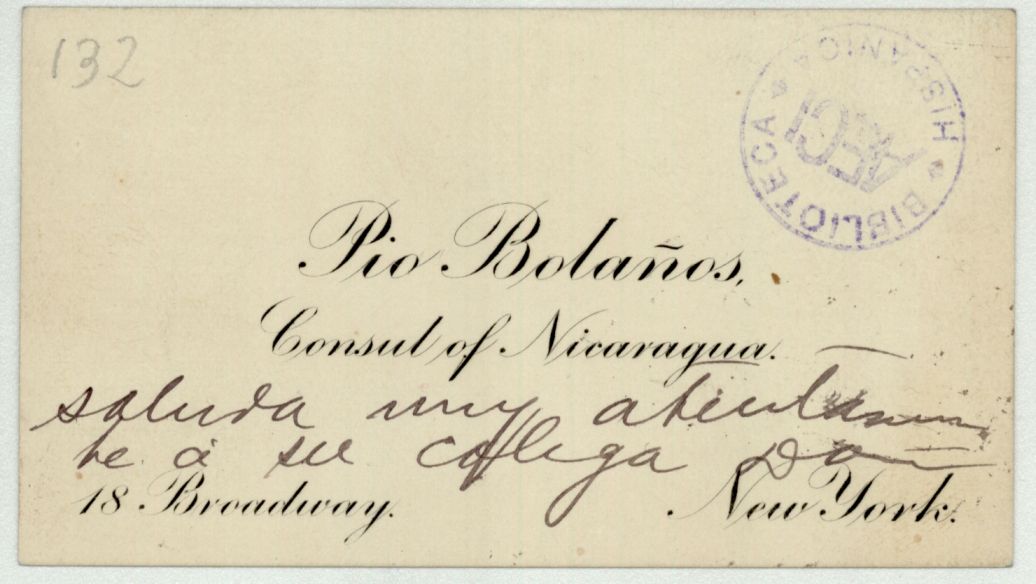 132
BIBLIOTECA HISPANICA
AECI
Pio Bolaños,
Consul of Nicaragua.
saluda muy atentamen
te á su collega Don
18 Broadway. New York.